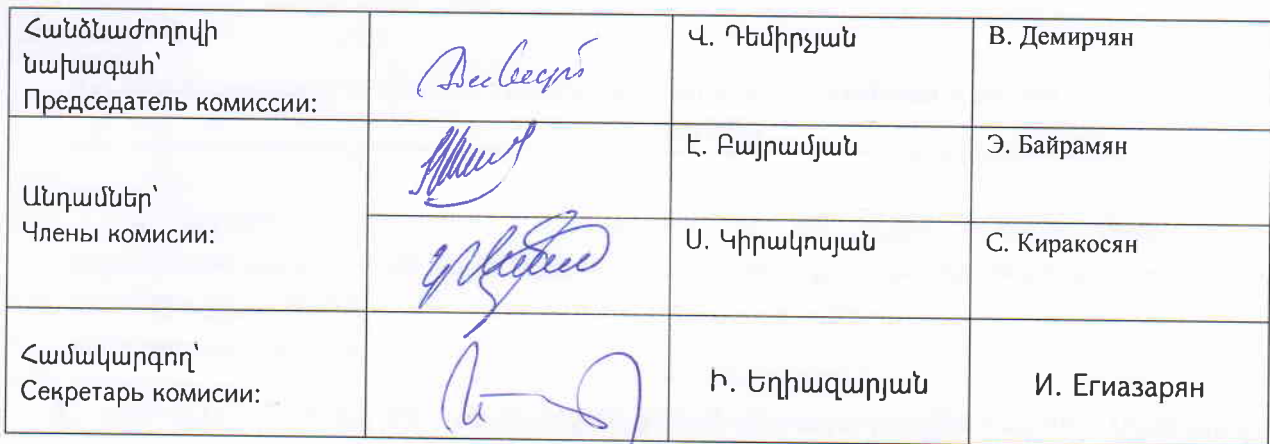 Հանձնաժողովի
նախագահ՝
Председатель комиссии:
Վ. Դեմիրչյան
В. Демирчян
Անդամներ՝
Члены комисии:
Է. Բայրամյան
Э. Байрамян
Ս. Կիրակոսյան
С. Киракосян
Համակարգող՝
Секретарь комисии:
Ի. Եղիազարյան
И. Егиазарян